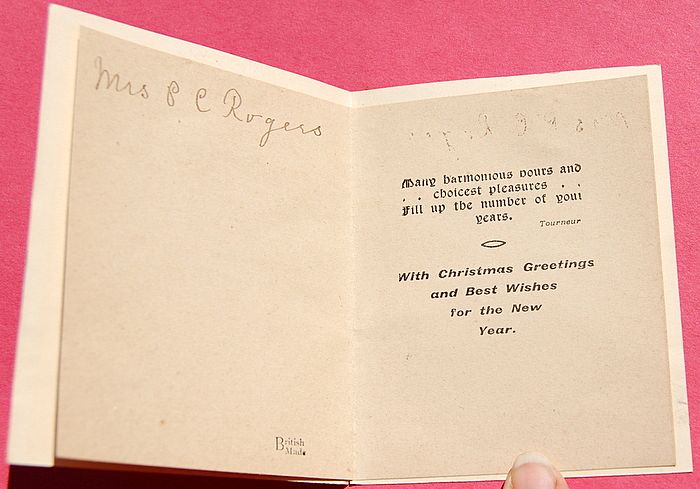 Mrs P C Rogers
British
Made
Many harmonious hours and
. . choicest pleasures . .
Fill up the number of your
years.
Tourneur
With Christmas Greetings
and Best Wishes
for the New
Year.